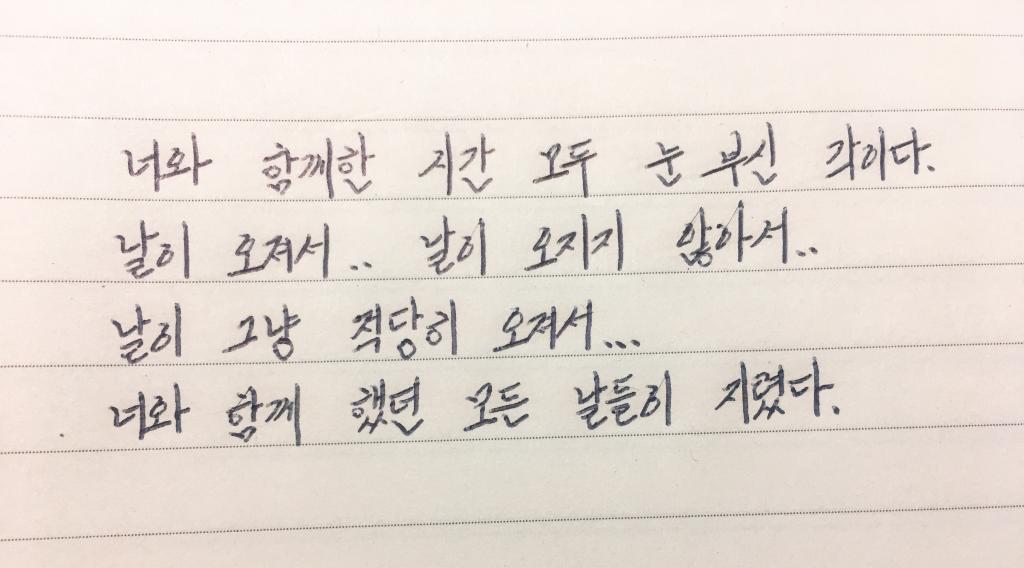 너와 함께한 지간 모두 눈 부신 각이다.
날이 오져서.. 날이 오지지 않아서..
날이 그냥 적당히 오져서...
너와 함께 했던 모든 날들이 지렸다.